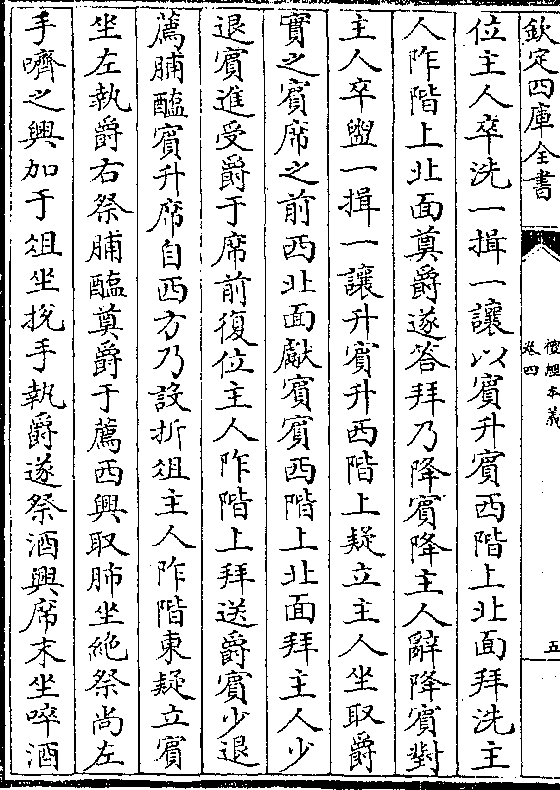 欽定四庫全書
卷四
五
位主人卒洗一揖一讓以賓升賓西階上北面拜洗主
人阼階上北面奠爵遂答拜乃降賓降主人辭降賓對
主人卒盥一揖一讓升賓升西階上疑立主人坐取爵
實之賓席之前西北面獻賓賓西階上北面拜主人少
退賓進受爵于席前復位主人阼階上拜送爵賓少退
薦脯醢賓升席自西方乃設折俎主人阼階東疑立賓
坐左執爵右祭脯醢奠爵于薦西興取肺坐絶祭尚左
手嚌之興加于俎坐挩手執爵遂祭酒興席末坐啐酒